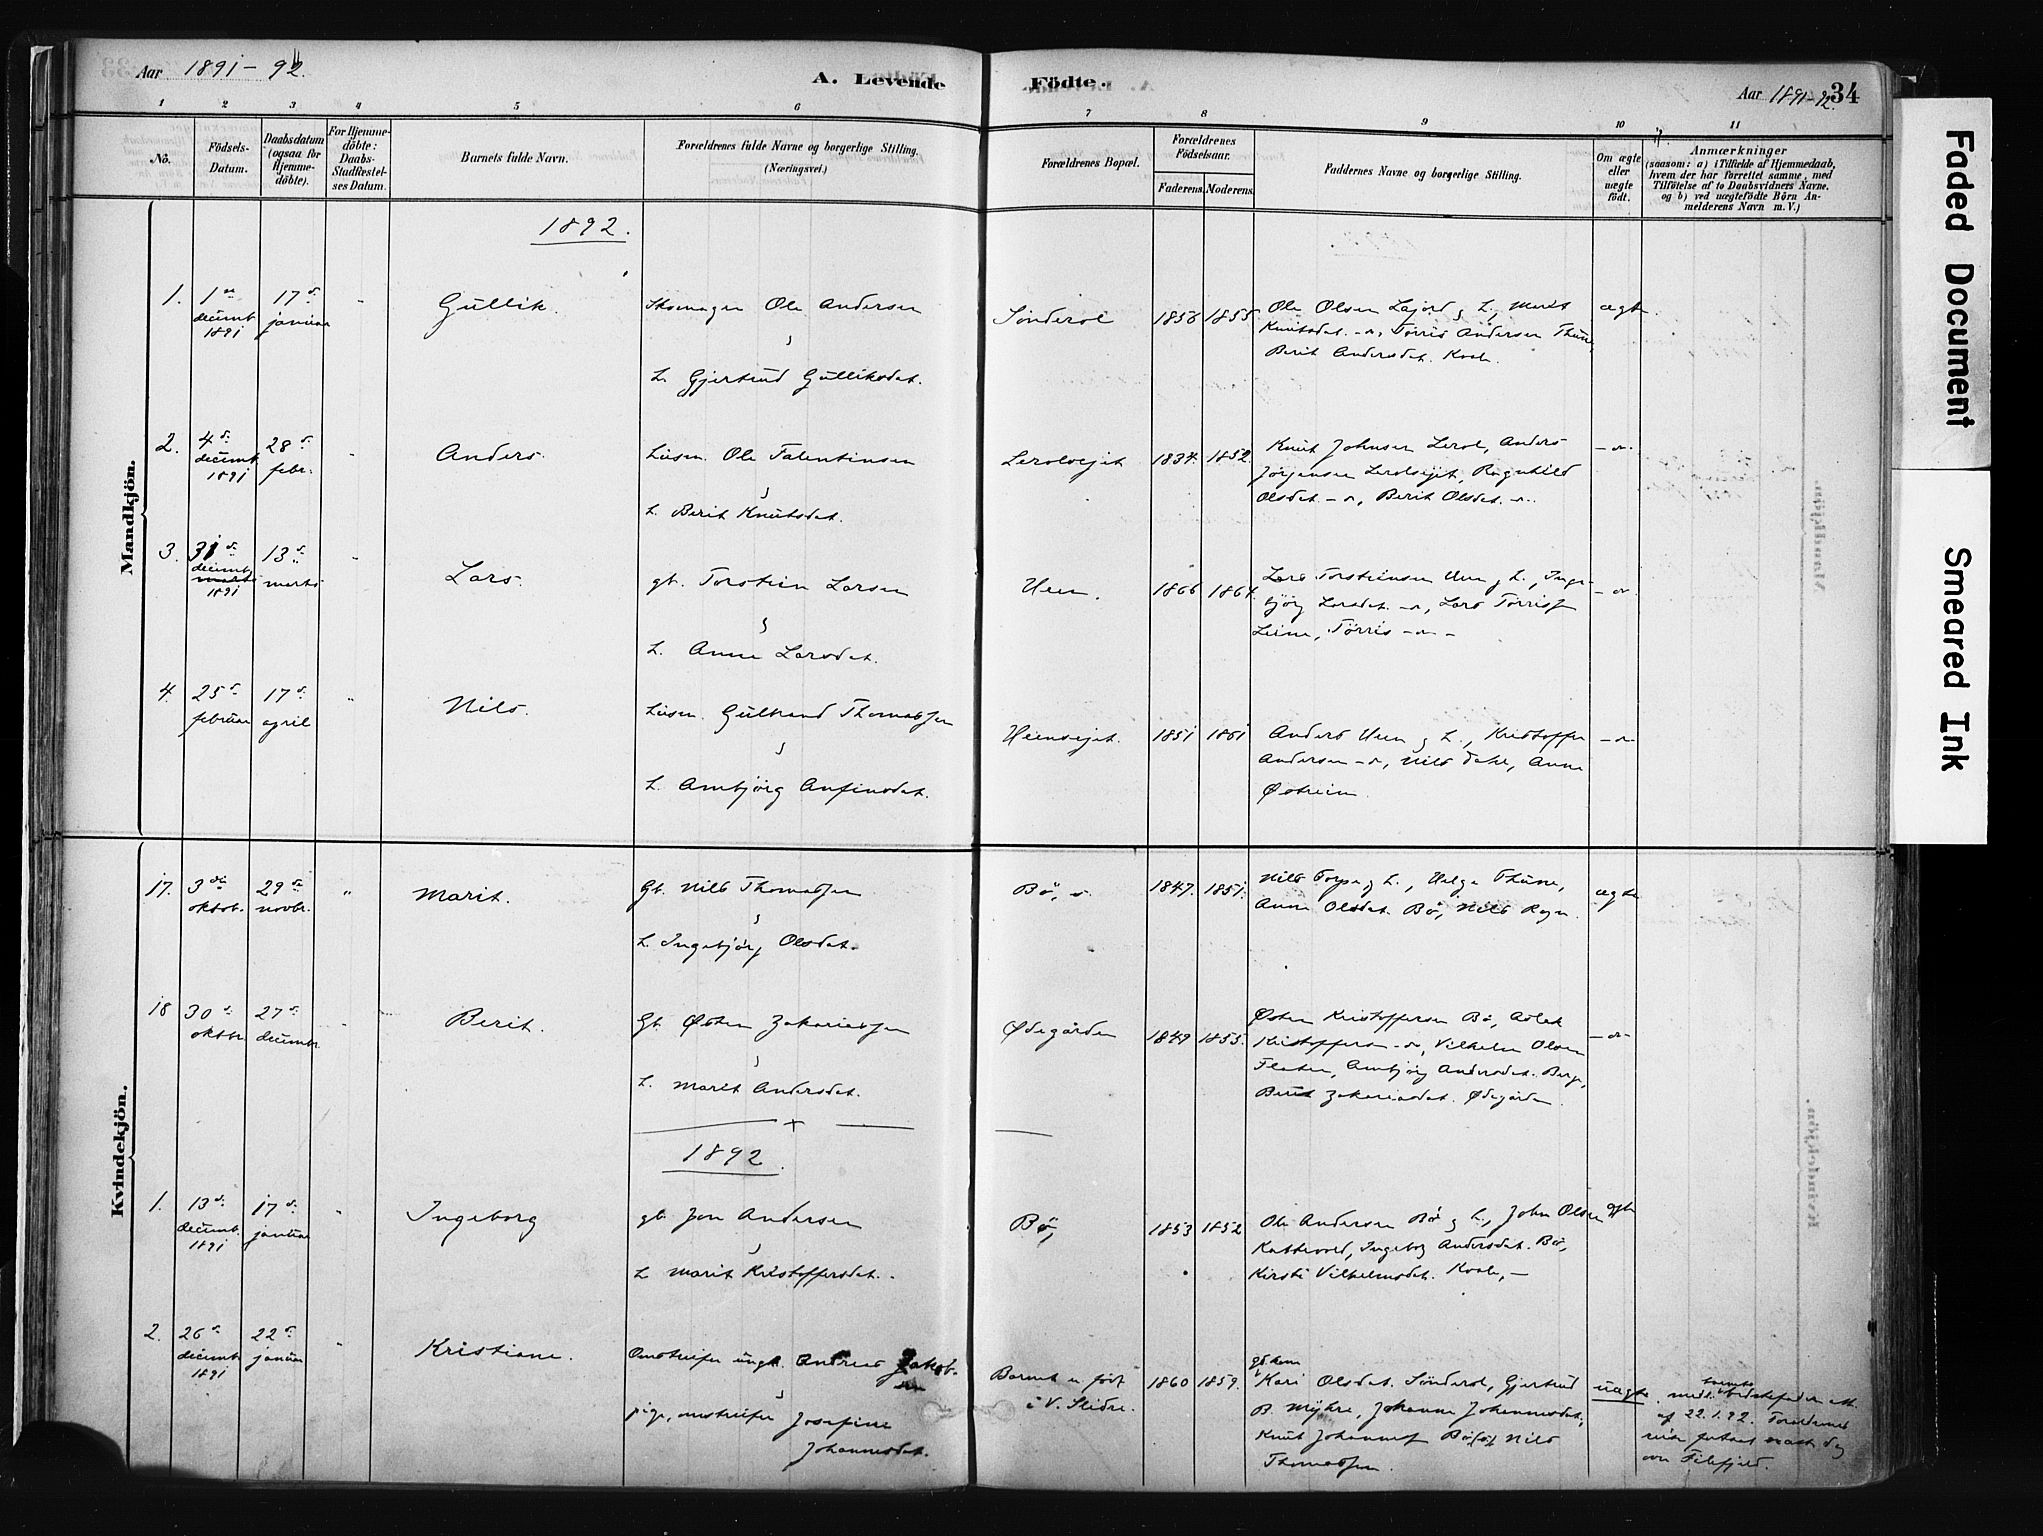 Aar 1891-92.
A. Levende
Fødte.
Aar 1891-92.
34
1 2 3 4 5 6 7 8 9 10 11
No.
Födsels-
Datum.
Daabsdatum
(ogsaa for
Hjemme-
döbte).
For Hjemme-
döbte:
Daabs-
Stadfæstel-
ses Datum.
Barnets fulde Navn.
Forældrenes fulde Navne og borgerlige Stilling.
(Næringsvei.)
Forældrenes Bopæl.
Forældrenes
Födselsaar.
Faderens. Moderens.
Faddernes Navne og borgerlige Stilling.
Om ægte
eller
uægte
födt.
Anmærkninger
(saasom: a) i Tilfælde af Hjemmedaab,
hvem der har forrettet samme, med
Tilföielse af to Daabsvidners Navne.
og b) ved uægtefödte Börn An-
melderens Navn m. V.)
Mandkjön.
1892.
1.
decemb.
1891
17
januar
Gullik.
Skomager Ole Andersen
h. Gjertrud Gulliksdat.
Sönderol
1858 1855
Ole Olsen Lajord og h. Marit
Knutsdat. Torris Andersen Thune,
Berit Andersdat. Kvale.
ægte
2.
4
decemb.
1891
28
febr.
Anders.
Ole Falentinsen
h. Berit Knutsdat.
Leroleiet
1834. 1852.
Knut Johnsen Lerol, Anders
Jörgensen Leroleiet, Ragnhild
Olsdat. Berit Olsdat.
3.
31
decemb.
marts
1891
13
marts
Lars.
gb. Torstein Larsen
h. Anne Larsdat.
Uem.
1866 1864.
Lars Torsteinsen og h., Inge-
björg Larsdat. Lars Torrisf
Leine, Torris
4.
25
februar
17
april
Nils.
Gulbrand Thomassen
h. Ambjörg Anfinsdat.
1851 1861
Anders og h., Kristoffer
Andersen Nils Dahl, Anne
Østrein.
Kvindekjön.
17.
3
oktob.
29
novbr.
Marit.
Gb. Nils Thomassen
h. Ingebjörg Olsdat.
Bö,
1847. 1851.
Nils og h., Helge Thune,
Anne Olsdat. Bö, Nils
ægte
18
30
oktbr.
27
decembr.
Berit.
Gb. Østen Zakariassen
h. Marit Andersdat.
Ødegården
1849 1855.
Østen Kristoffersen Bö,
Kristoffersen Vilhelm Olsen
Ambjörg Andersdat. Berge,
Berit Zakariasdat. Ødegården.
1892.
1.
13
decemb.
1891
17
januar
Ingeborg
gb. Jon Andersen
h. Marit Kristoffersdat.
Bö,
1853 1852
Ole Andersen Bö og h., John Olsen
Ingeborg Andersdat. Bö,
Kirsti Vilhelmsdat. Kvale,
ægte
2.
26
decemb.
1891
22
januar
Kristiane.
Omstreifer ungk. Andreas Jakob-
sen
pige, omstreifer Josefine
Johannesdat.
Barnet er født
i V. Slidre.
1860 1859.
Kari Olsdat. Sönderol, Gjertrud
B. Myhre, Johanne Johannesdat.,
Knut Johannesf Nils
Thomassen.
uægte
af 22.1.92. Forældrene
over Filefjeld.
Faded Document
Smeared Ink